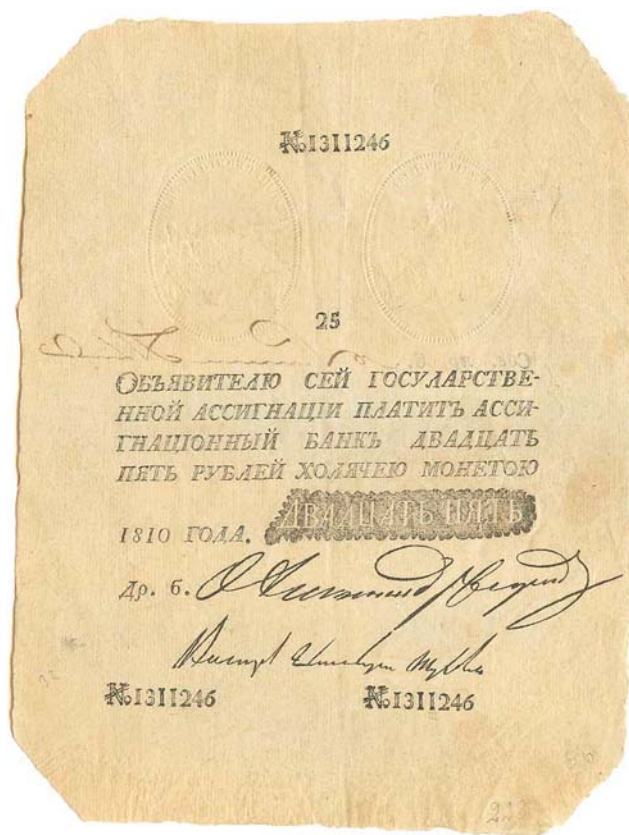 №1311246
25
ОБЪЯВИТЕЛЮ СЕЙ ГОСУЛАРСТВЕ-
ННОЙ АССИГНАЦІИ ПЛАТИТЪ АССИ-
ГНАЦІОННЫЙ БАНКЪ ДВАДЦАТЬ
ПЯТЬ РУБЛЕЙ ХОЛЯЧЕЮ МОНЕТОЮ
1810 ГОДА. ДВАДЦАТЬ ПЯТЬ
Др. б.
№1311246 №1311246